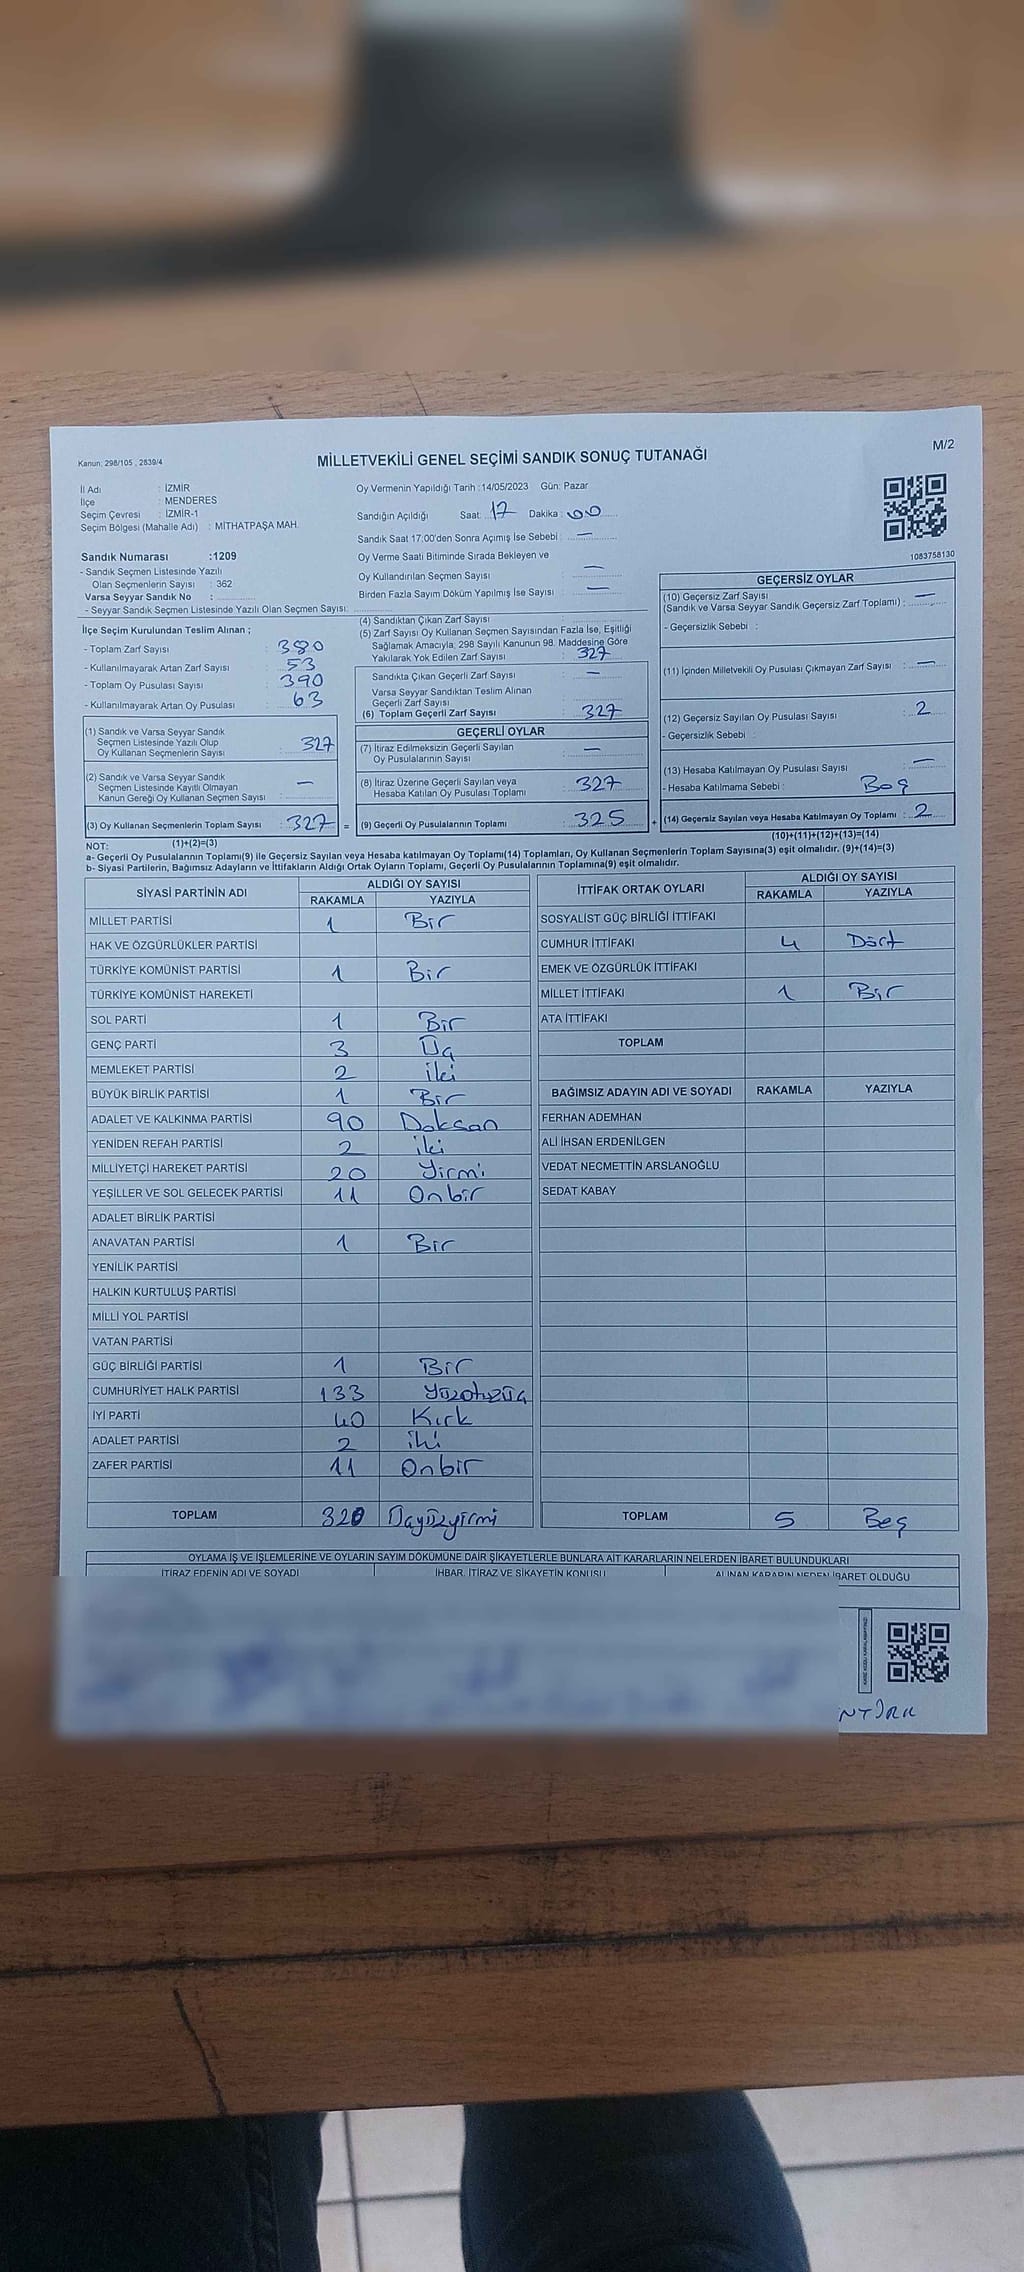 Kanun: 298/105 , 2839/4
MİLLETVEKİLİ GENEL SEÇİMİ SANDIK SONUÇ TUTANAĞI
M/2
İl Adı : İZMİR
İlçe : MENDERES
Seçim Çevresi : İZMİR-1
Seçim Bölgesi (Mahalle Adı) : MİTHATPAŞA MAH.
Oy Vermenin Yapıldığı Tarih :14/05/2023 Gün: Pazar
Sandığın Açıldığı Saat: 17 Dakika : 00
Sandık Saat 17:00'den Sonra Açımış İse Sebebi : —
Oy Verme Saati Bitiminde Sırada Bekleyen ve
Oy Kullandırılan Seçmen Sayısı : —
Birden Fazla Sayım Döküm Yapılmış İse Sayısı : —
1083758130
Sandık Numarası :1209
- Sandık Seçmen Listesinde Yazılı
Olan Seçmenlerin Sayısı : 362
Varsa Seyyar Sandık No :
- Seyyar Sandık Seçmen Listesinde Yazılı Olan Seçmen Sayısı:
İlçe Seçim Kurulundan Teslim Alınan ;
- Toplam Zarf Sayısı : 380
- Kullanılmayarak Artan Zarf Sayısı : 53
- Toplam Oy Pusulası Sayısı : 390
- Kullanılmayarak Artan Oy Pusulası : 63
(1) Sandık ve Varsa Seyyar Sandık
Seçmen Listesinde Yazılı Olup
Oy Kullanan Seçmenlerin Sayısı : 327
(2) Sandık ve Varsa Seyyar Sandık
Seçmen Listesinde Kayıtlı Olmayan
Kanun Gereği Oy Kullanan Seçmen Sayısı : —
(3) Oy Kullanan Seçmenlerin Toplam Sayısı : 327 =
(4) Sandıktan Çıkan Zarf Sayısı :
(5) Zarf Sayısı Oy Kullanan Seçmen Sayısından Fazla İse, Eşitliği
Sağlamak Amacıyla; 298 Sayılı Kanunun 98. Maddesine Göre
Yakılarak Yok Edilen Zarf Sayısı : 327
Sandıkta Çıkan Geçerli Zarf Sayısı : —
Varsa Seyyar Sandıktan Teslim Alınan
Geçerli Zarf Sayısı :
(6) Toplam Geçerli Zarf Sayısı : 327
GEÇERLİ OYLAR
(7) İtiraz Edilmeksizin Geçerli Sayılan
Oy Pusulalarının Sayısı : —
(8) İtiraz Üzerine Geçerli Sayılan veya
Hesaba Katılan Oy Pusulası Toplamı : 327
(9) Geçerli Oy Pusulalarının Toplamı : 325 +
GEÇERSİZ OYLAR
(10) Geçersiz Zarf Sayısı
(Sandık ve Varsa Seyyar Sandık Geçersiz Zarf Toplamı) : —
- Geçersizlik Sebebi :
(11) İçinden Milletvekili Oy Pusulası Çıkmayan Zarf Sayısı : —
(12) Geçersiz Sayılan Oy Pusulası Sayısı : 2
- Geçersizlik Sebebi :
(13) Hesaba Katılmayan Oy Pusulası Sayısı : —
- Hesaba Katılmama Sebebi : Boş
(14) Geçersiz Sayılan veya Hesaba Katılmayan Oy Toplamı : 2
NOT: (1)+(2)=(3)
(10)+(11)+(12)+(13)=(14)
a- Geçerli Oy Pusulalarının Toplamı(9) ile Geçersiz Sayılan veya Hesaba katılmayan Oy Toplamı(14) Toplamları, Oy Kullanan Seçmenlerin Toplam Sayısına(3) eşit olmalıdır. (9)+(14)=(3)
b- Siyasi Partilerin, Bağımsız Adayların ve İttifakların Aldığı Ortak Oyların Toplamı, Geçerli Oy Pusulalarının Toplamına(9) eşit olmalıdır.
SİYASİ PARTİNİN ADI ALDIĞI OY SAYISI
RAKAMLA YAZIYLA
MİLLET PARTİSİ 1 Bir
HAK VE ÖZGÜRLÜKLER PARTİSİ
TÜRKİYE KOMÜNİST PARTİSİ 1 Bir
TÜRKİYE KOMÜNİST HAREKETİ
SOL PARTİ 1 Bir
GENÇ PARTİ 3 Üç
MEMLEKET PARTİSİ 2 iki
BÜYÜK BİRLİK PARTİSİ 1 Bir
ADALET VE KALKINMA PARTİSİ 90 Doksan
YENİDEN REFAH PARTİSİ 2 iki
MİLLİYETÇİ HAREKET PARTİSİ 20 Yirmi
YEŞİLLER VE SOL GELECEK PARTİSİ 11 Onbir
ADALET BİRLİK PARTİSİ
ANAVATAN PARTİSİ 1 Bir
YENİLİK PARTİSİ
HALKIN KURTULUŞ PARTİSİ
MİLLİ YOL PARTİSİ
VATAN PARTİSİ
GÜÇ BİRLİĞİ PARTİSİ 1 Bir
CUMHURİYET HALK PARTİSİ 133 Yüzotuzüç
İYİ PARTİ 40 Kırk
ADALET PARTİSİ 2 iki
ZAFER PARTİSİ 11 Onbir
TOPLAM 320 Üçyüzyirmi
İTTİFAK ORTAK OYLARI ALDIĞI OY SAYISI
RAKAMLA YAZIYLA
SOSYALİST GÜÇ BİRLİĞİ İTTİFAKI
CUMHUR İTTİFAKI 4 Dört
EMEK VE ÖZGÜRLÜK İTTİFAKI
MİLLET İTTİFAKI 1 Bir
ATA İTTİFAKI
TOPLAM
BAĞIMSIZ ADAYIN ADI VE SOYADI RAKAMLA YAZIYLA
FERHAN ADEMHAN
ALİ İHSAN ERDENİLGEN
VEDAT NECMETTİN ARSLANOĞLU
SEDAT KABAY
TOPLAM 5 Beş
OYLAMA İŞ VE İŞLEMLERİNE VE OYLARIN SAYIM DÖKÜMÜNE DAİR ŞİKAYETLERLE BUNLARA AİT KARARLARIN NELERDEN İBARET BULUNDUKLARI
İTİRAZ EDENİN ADI VE SOYADI İHBAR, İTİRAZ VE ŞİKAYETİN KONUSU ALINAN KARARIN NEDEN İBARET OLDUĞU